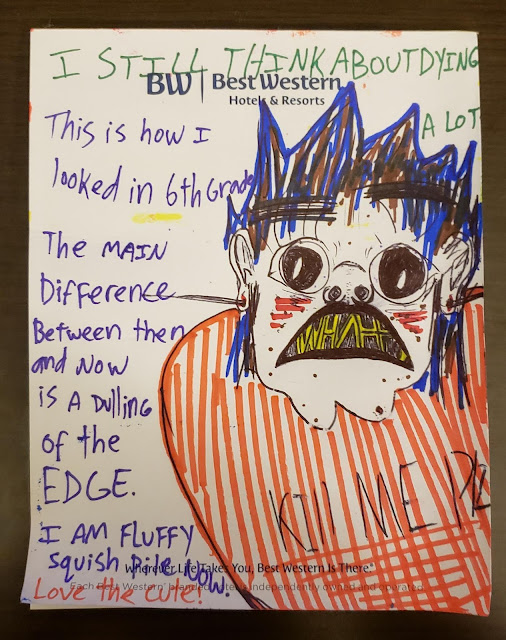 I STILL THINK ABOUT DYING
BW | Best Western
Hotels & Resorts
A LOT
This is how I
looked in 6th Grade
The MAIN
Difference
Between then
and Now
is A Dulling
of the
EDGE.
WHAHH
KIll ME Plz
I AM FLUFFY
Squish Pile Now.
Wherever Life Takes You, Best Western Is There.®
Each Best Western® branded hotel is independently owned and operated.
Love The Cute!